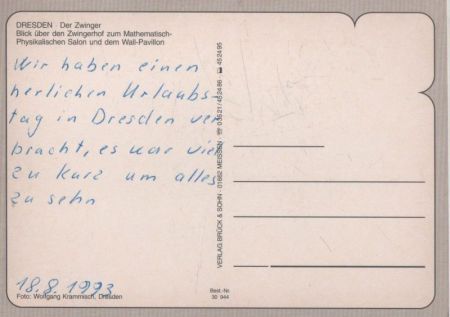 DRESDEN · Der Zwinger
Blick über den Zwingerhof zum Mathematisch-
Physikalischen Salon und dem Wall-Pavillon
Wir haben einen
herlichen Urlaubs-
tag in Dresden ver
bracht, es war viel
zu kurz um alles
zu sehn
18.8.1993
Foto: Wolfgang Krammisch, Dresden
VERLAG BRÜCK & SOHN · 01662 MEISSEN · ☏ 03521/452486 452495
Best.-Nr.
30 944